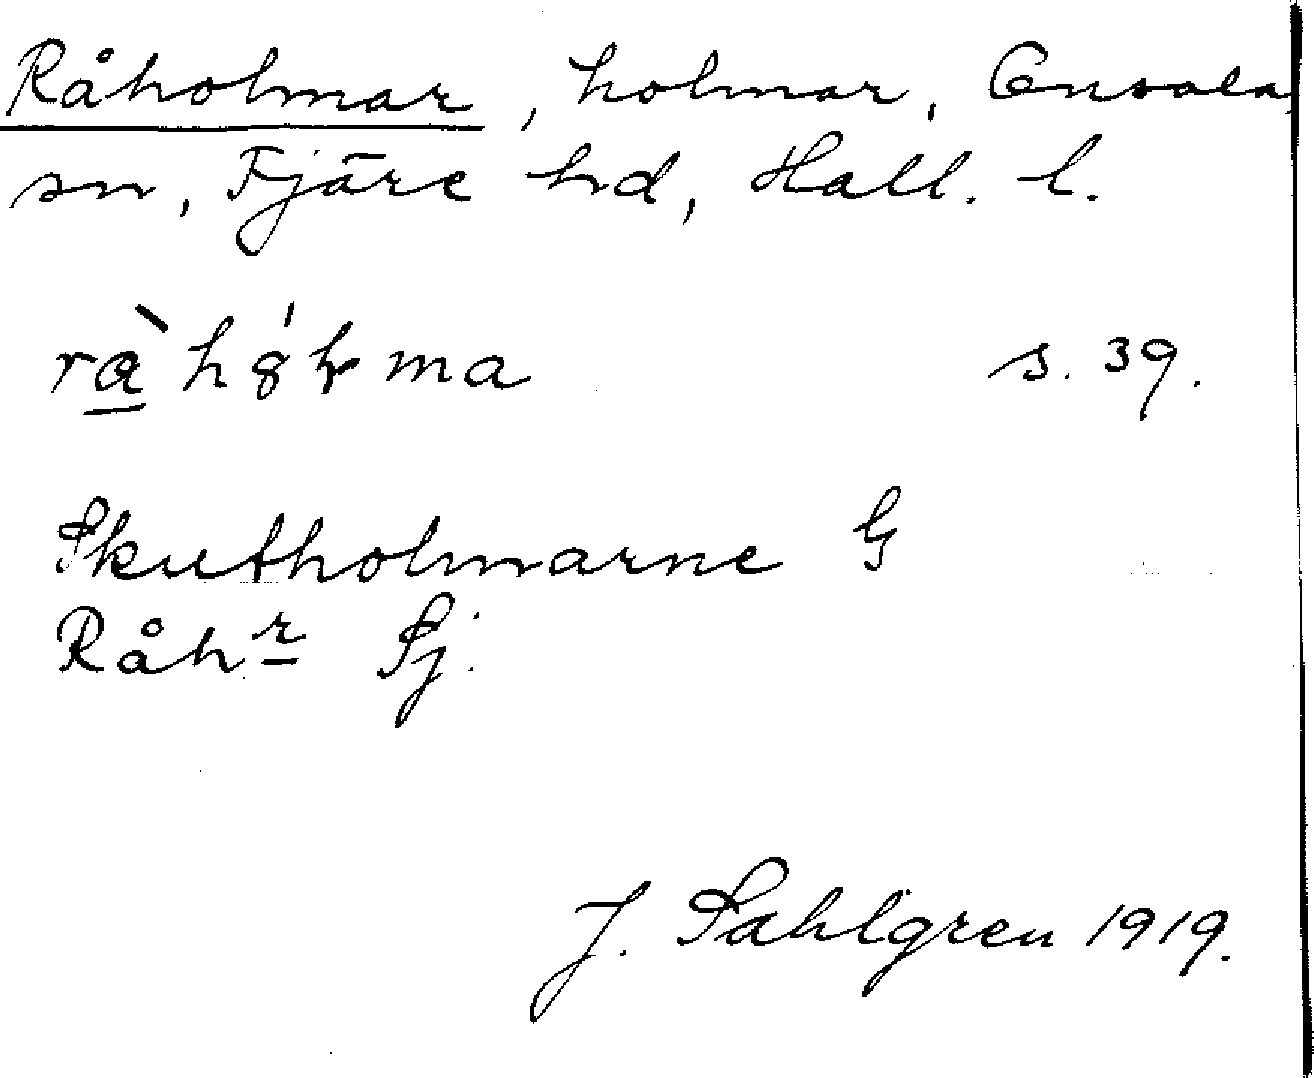 Råholmar, holmar, Onsala
sn, Fjäre hd, Hall. l.
s. 39.
Skutholmarne G
Råhr Sj.
J. Sahlgren 1919.